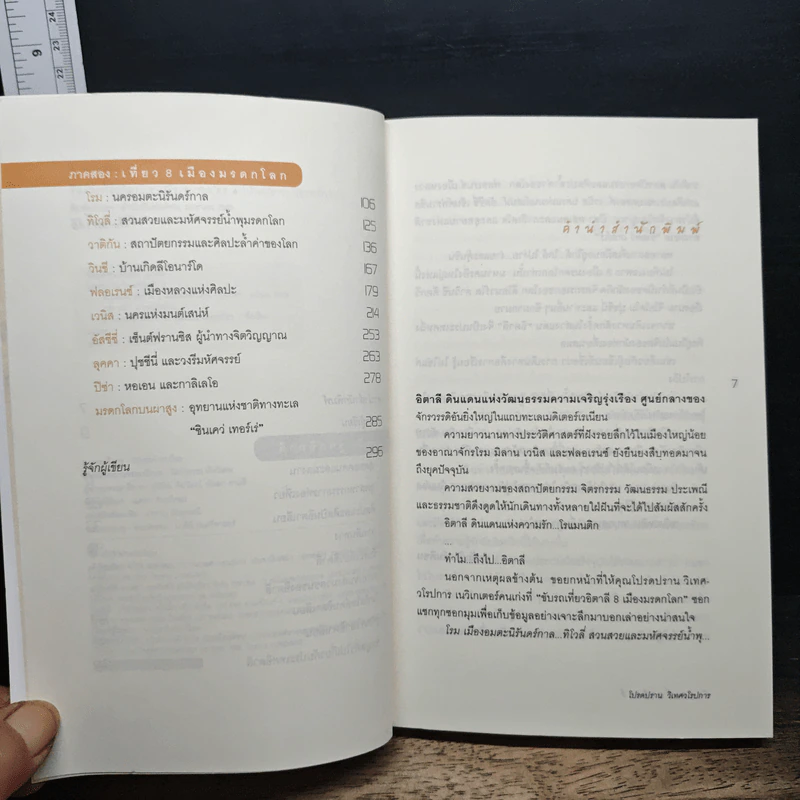 9
24
23
22
ภาคสอง : เที่ยว 8 เมืองมรดกโลก
โรม : นครอมตะนิรันดร์กาล 106
ทิโวลี่ : สวนสวยและมหัศจรรย์น้ำพุมรดกโลก 125
วาติกัน : สถาปัตยกรรมและศิลปะล้ำค่าของโลก 136
วินชี : บ้านเกิดลีโอนาร์โด 167
ฟลอเรนซ์ : เมืองหลวงแห่งศิลปะ 179
เวนิส : นครแห่งมนต์เสน่ห์ 214
อัสซีซี่ : เซ็นต์ฟรานซิส ผู้นำทางจิตวิญญาณ 253
ลุคคา : ปุชชีนี่ และวงรีมหัศจรรย์ 263
ปิซ่า : หอเอน และกาลิเลโอ 278
มรดกโลกบนผาสูง : อุทยานแห่งชาติทางทะเล
“ชินเคว่ เทอร์เร่” 285
รู้จักผู้เขียน 296
คำนำสำนักพิมพ์
7
อิตาลี ดินแดนแห่งวัฒนธรรมความเจริญรุ่งเรือง ศูนย์กลางของ
จักรวรรดิอันยิ่งใหญ่ในแถบทะเลเมดิเตอร์เรเนียน
ความยาวนานทางประวัติศาสตร์ที่ฝังรอยลึกไว้ในเมืองใหญ่น้อย
ของอาณาจักรโรม มิลาน เวนิส และฟลอเรนซ์ ยังยืนยงสืบทอดมาจน
ถึงยุคปัจจุบัน
ความสวยงามของสถาปัตยกรรม จิตรกรรม วัฒนธรรม ประเพณี
และธรรมชาติดึงดูดให้นักเดินทางทั้งหลายใฝ่ฝันที่จะได้ไปสัมผัสสักครั้ง
อิตาลี ดินแดนแห่งความรัก...โรแมนติก
...
ทำไม...ถึงไป...อิตาลี
นอกจากเหตุผลข้างต้น ขอยกหน้าที่ให้คุณโปรดปราน วิเทศ-
วโรปการ เนวิเกเตอร์คนเก่งที่ “ขับรถเที่ยวอิตาลี 8 เมืองมรดกโลก” ซอก
แซกทุกซอกมุมเพื่อเก็บข้อมูลอย่างเจาะลึกมาบอกเล่าอย่างน่าสนใจ
โรม เมืองอมตะนิรันดร์กาล...ทิโวลี่ สวนสวยและมหัศจรรย์น้ำพุ...
โปรดปราน วิเทศวโรปการ